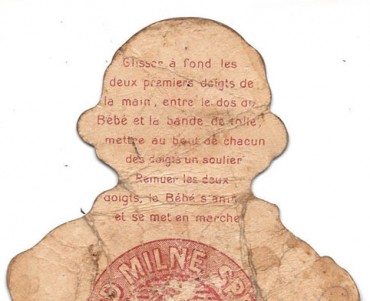 Glisser à fond les
deux premiers doigts de
la main, entre le dos du
Bébé et la bande de toile,
mettre au bout de chacun
des doigts un soulier
Remuer les deux
doigts, le Bébé s'anime
et se met en marche
MILNE